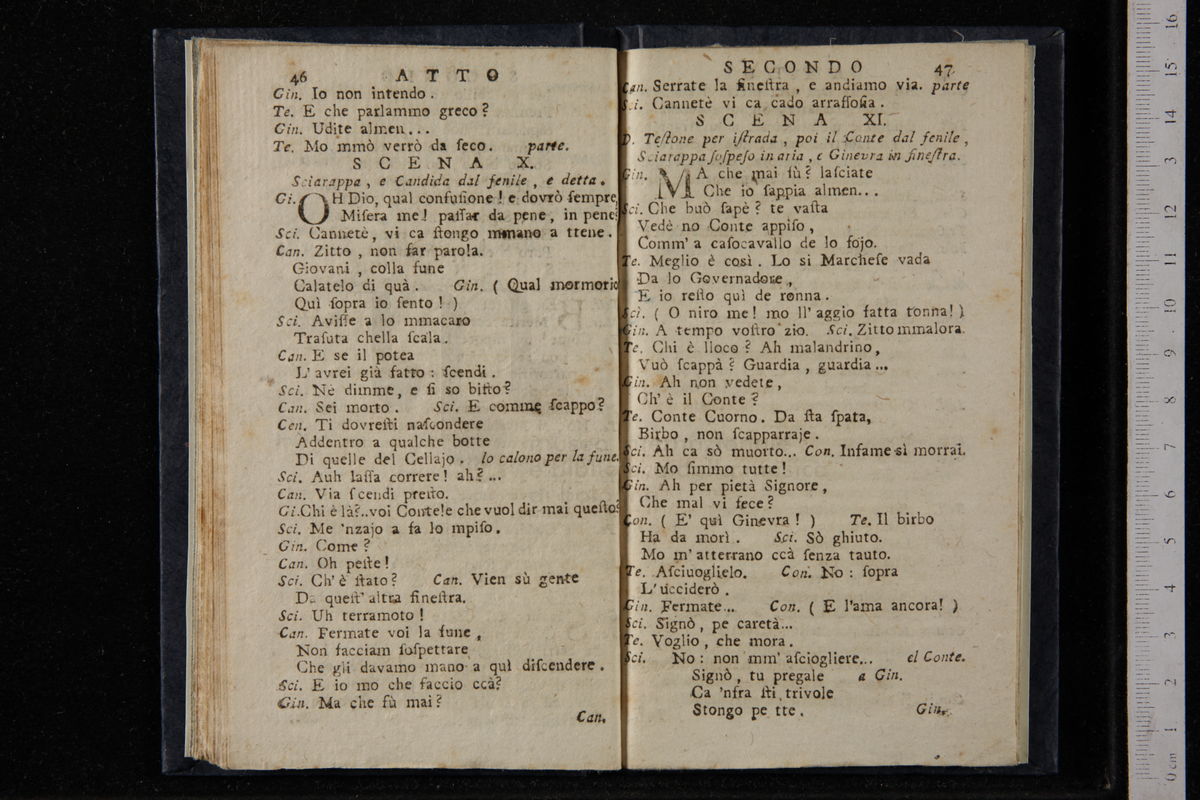 46 ATTO
Gin. Io non intendo.
Te. E che parlammo greco?
Gin. Udite almen...
Te. Mo mmò verrò da ſeco. parte.
SCENA X.
Sciarappa, e Candida dal fenile, e detta.
Gi. OH Dio, qual confuſione! e dovrò ſempre
Miſera me! paſſar da pene, in pene?
Sci. Cannetè, vi ca ſtongo mmano a ttene.
Can. Zitto, non far parola.
Giovani, colla fune
Calatelo di quà. Gin. ( Qual mormorio
Quì ſopra io ſento! )
Sci. Aviſſe a lo mmacaro
Traſuta chella ſcala.
Can. E se il potea
L'avrei già fatto: ſcendi.
Sci. Nè dimme, e ſi so biſto?
Can. Sei morto. Sci. E comme ſcappo?
Cen. Ti dovreſti naſcondere
Addentro a qualche botte
Di quelle del Cellajo. lo calono per la fune.
Sci. Auh laſſa correre! ah?...
Can. Via ſcendi preſto.
Gi. Chi è là?..voi Conte!e che vuol dir mai queſto?
Sci. Me 'nzajo a fa lo mpiſo.
Gin. Come?
Can. Oh peſte!
Sci. Ch'è ſtato? Can. Vien sù gente
Da queſt' altra fineſtra.
Sci. Uh terramoto!
Can. Fermate voi la fune,
Non facciam ſoſpettare
Che gli davamo mano a quì diſcendere.
Sci. E io mo che faccio ccà?
Gin. Ma che fù mai?
Can.
SECONDO 47
Can. Serrate la fineſtra, e andiamo via. parte
Sci. Cannetè vi ca cado arraſſoſia.
SCENA XI.
D. Teſtone per iſtrada, poi il Conte dal fenile,
Sciarappa ſoſpeſo in aria, e Ginevra in fineſtra.
Gin. MA che mai fù? laſciate
Che io ſappia almen...
Sci. Che buò ſapè? te vaſta
Vedè no Conte appiſo,
Comm' a caſocavallo de lo fojo.
Te. Meglio è così. Lo si Marcheſe vada
Da lo Governadore,
E io reſto quì de ronna.
Sci. ( O niro me! mo ll' aggio fatta tonna! )
Gin. A tempo voſtro zio. Sci. Zitto mmalora.
Te. Chi è lloco? Ah malandrino,
Vuò ſcappà? Guardia, guardia...
Gin. Ah non vedete,
Ch' è il Conte?
Te. Conte Cuorno. Da ſta ſpata,
Birbo, non ſcapparraje.
Sci. Ah ca sò muorto... Con. Infame sì morrai.
Sci. Mo ſimmo tutte!
Gin. Ah per pietà Signore,
Che mal vi fece?
Con. ( E' quì Ginevra! ) Te. Il birbo
Ha da morì. Sci. Sò ghiuto.
Mo m' atterrano ccà ſenza tauto.
Te. Aſciuoglielo. Con. No: ſopra
L' ucciderò.
Gin. Fermate... Con. ( E l'ama ancora! )
Sci. Signò, pe caretà...
Te. Voglio, che mora.
Sci. No: non mm' aſciogliere... el Conte.
Signò, tu pregale a Gin.
Ca 'nfra ſti trivole
Stongo pe tte. Gin.
0 cm 1 2 3 4 5 6 7 8 9 10 11 12 13 14 15 16